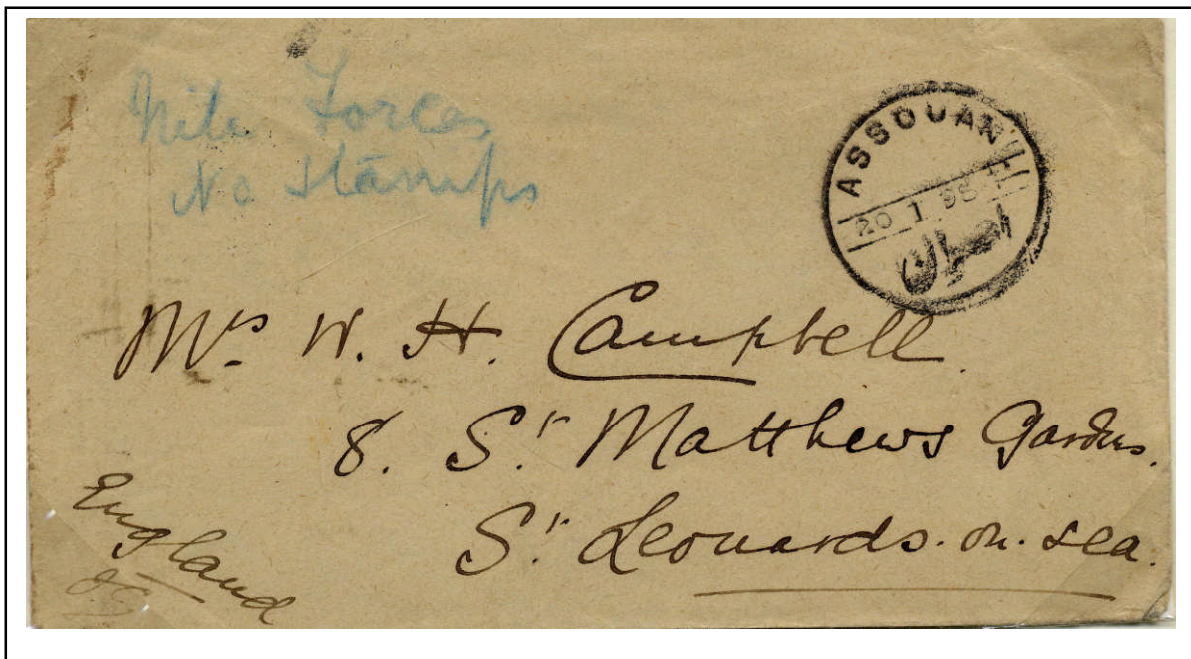 Nile Forces
No Stamps
ASSOUAN
20 I 86
اصوان
Mrs. W. H. Campbell.
8. St. Matthews Gardens.
St. Leonards. on. Sea.
England